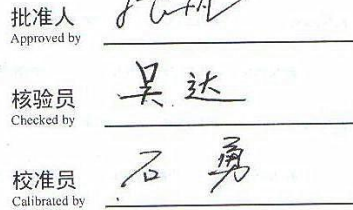 批准人
Approved by
核验员 吴达
Checked by
校准员 石勇
Calibrated by